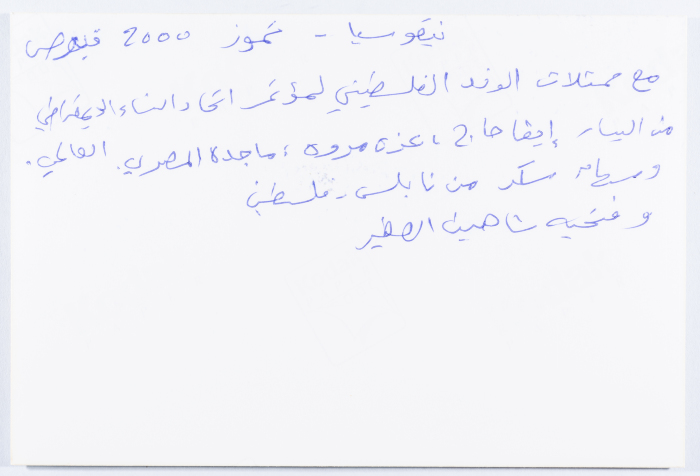 نيقوسيا - تموز 2000 قبرص
مع ممثلات الوفد الفلسطيني لمؤتمر اتحاد النساء الديمقراطي
العالمي. من اليسار إيفا حا.2، عزة مروة، ماجدة المصري.
وسهام سكر من نابلس - فلسطين
وفتحيه شاهين الصغير